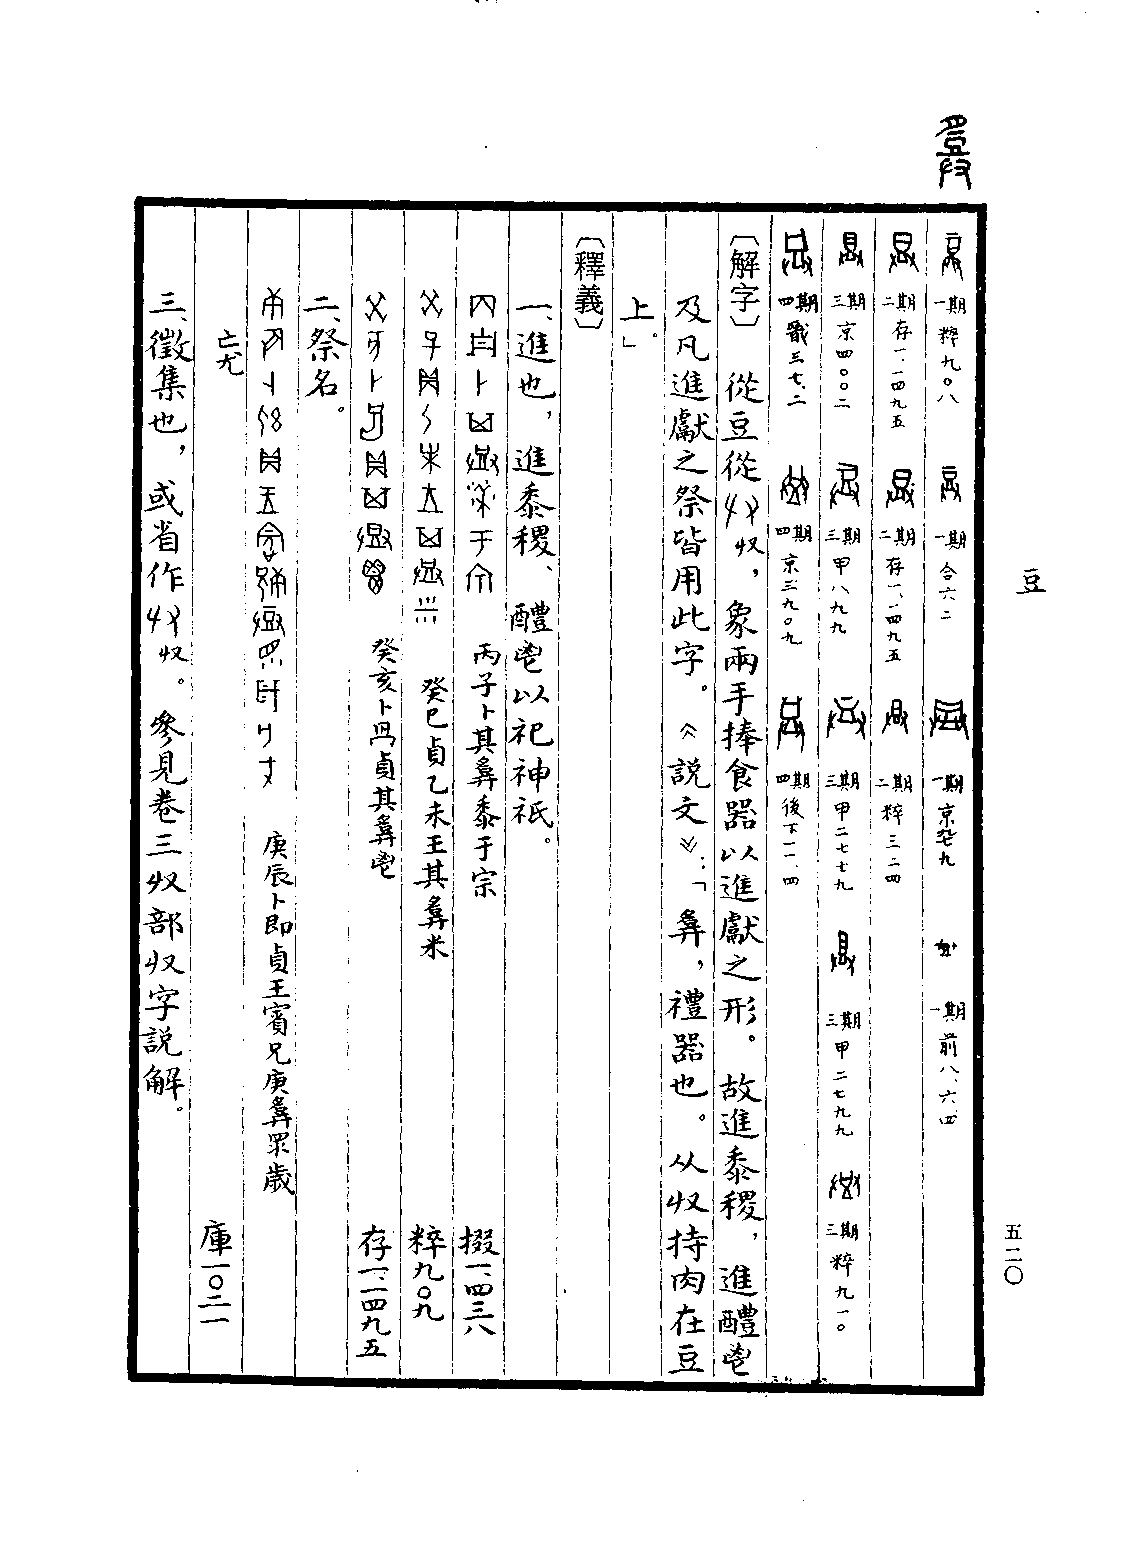 豆
五二〇
一期 粹九〇八 一期 合六二 一期 一期 前八、六、四
二期 存一、一四九五 二期 存一、一四九五 二期 粹三二四
三期 京四〇〇二 三期 甲八九九 三期 甲二七七九 三期 甲二七九九 三期 粹九一〇
四期 戬三七、二 四期 京三九〇九 四期 後下一一、四
〔解字〕 從豆從収，象兩手捧食器以進獻之形。故進黍稷，進醴鬯
及凡進獻之祭皆用此字。《説文》：「𢍪，禮器也。从収持肉在豆
上。」
〔釋義〕
一、進也，進黍稷、醴鬯以祀神祇。
丙子卜其𢍪黍于宗 掇一、四三八
癸巳貞乙未王其𢍪米 粹九〇九
癸亥卜貞其𢍪鬯 存一、一四九五
二、祭名。
庚辰卜即貞王賓兄庚𢍪眔歲
亡尤 庫一〇二一
三、徵集也，或省作収。參見卷三収部収字説解。